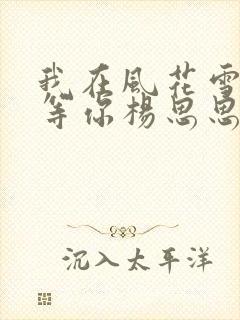 我在風花雪
等你楊思思
沉入太平洋